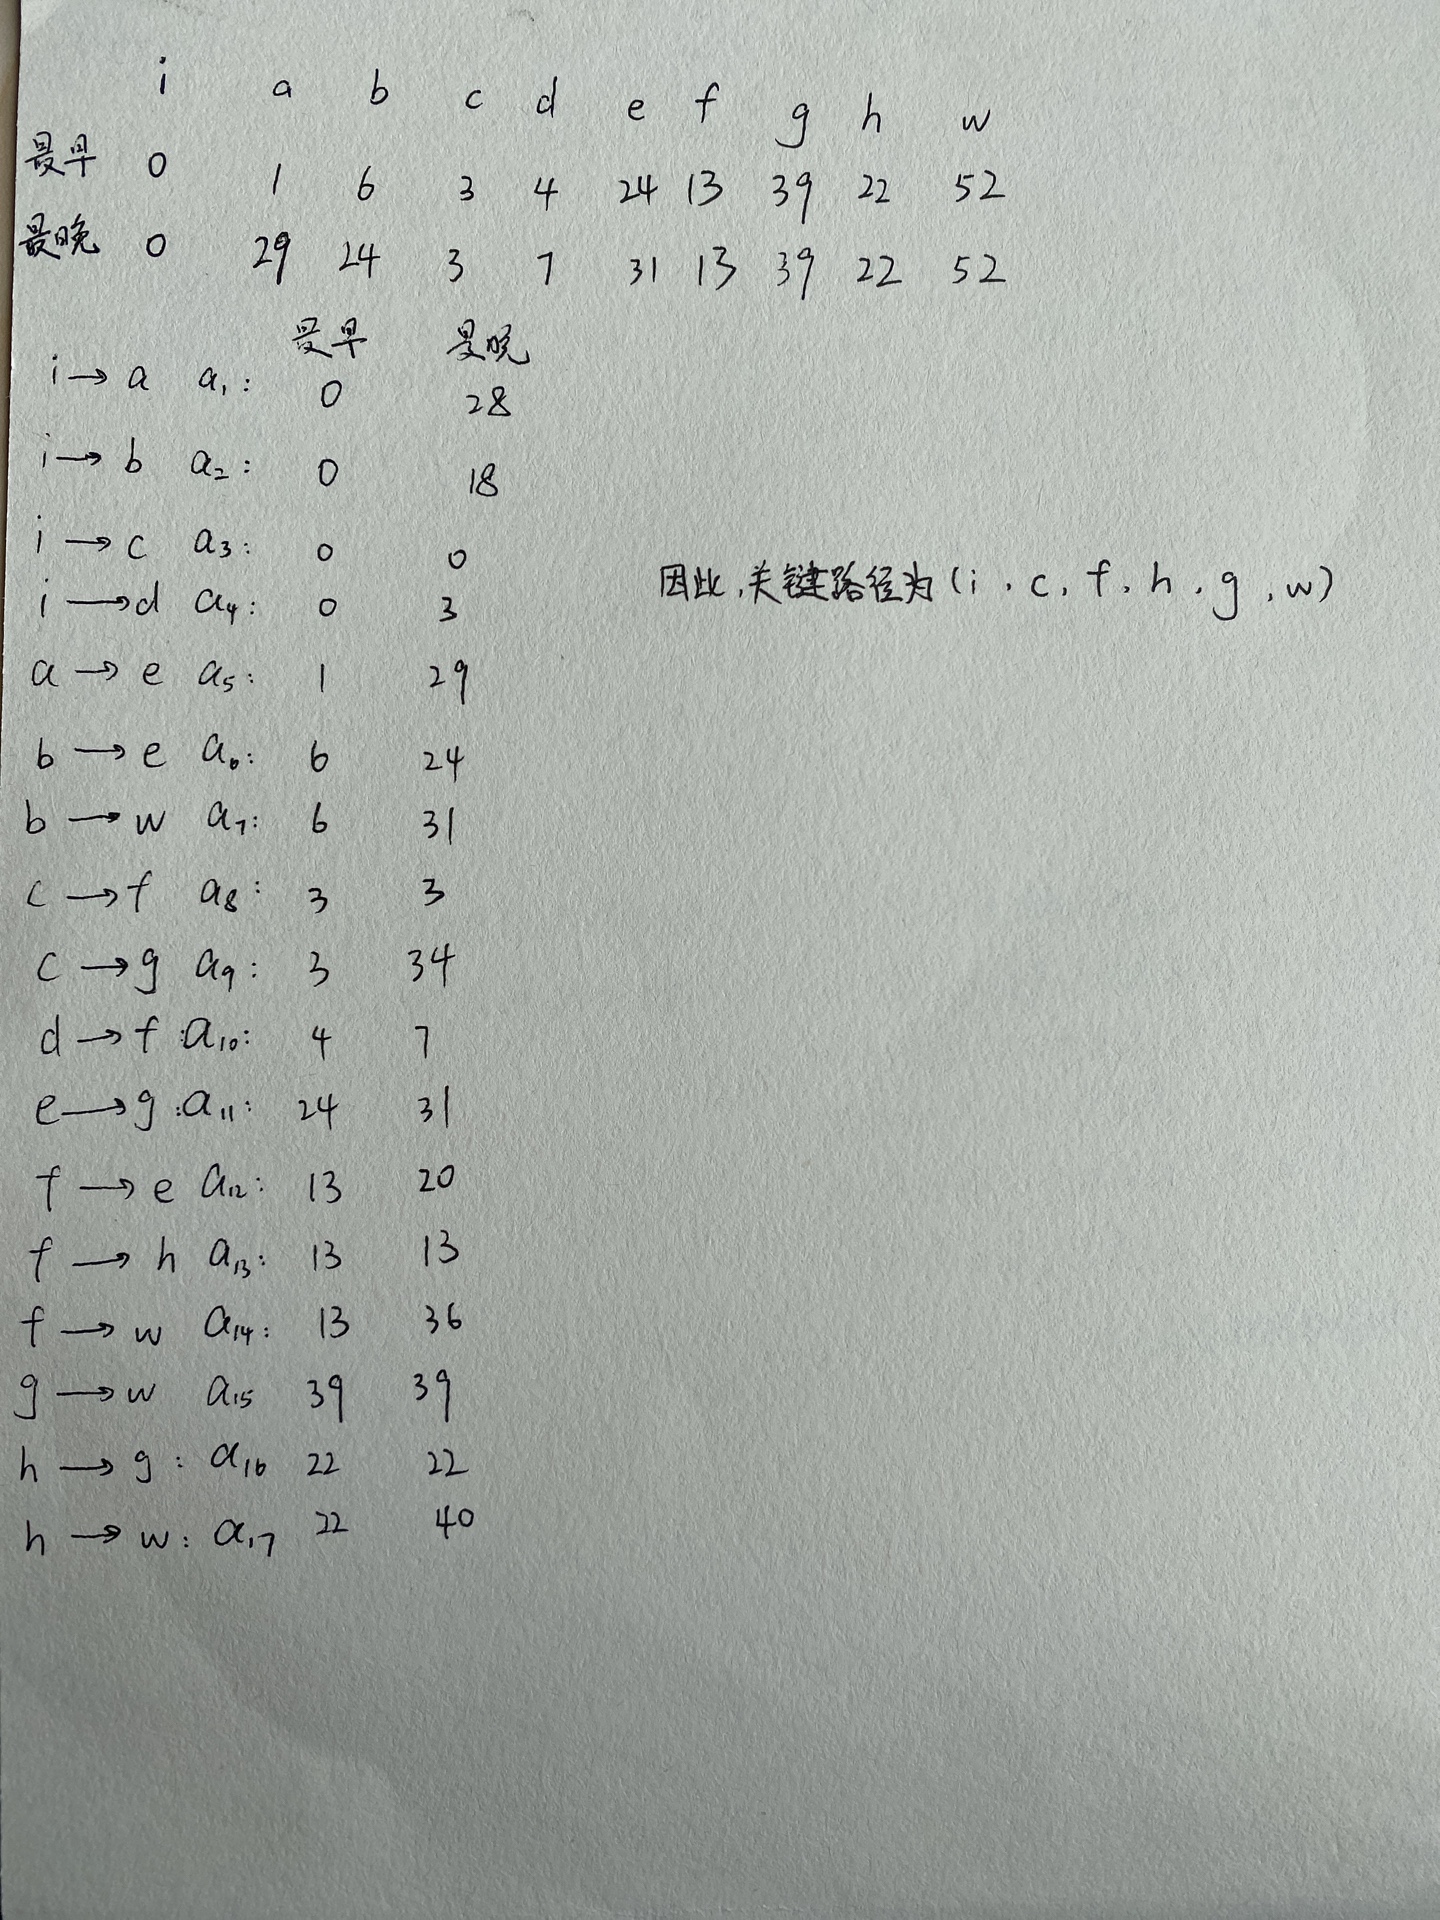 i a b c d e f g h w
最早 0 1 6 3 4 24 13 39 22 52
最晚 0 29 24 3 7 31 13 39 22 52
最早 最晚
i→a a₁: 0 28
i→b a₂: 0 18
i→c a₃: 0 0
i→d a₄: 0 3
因此,关键路径为(i,c,f,h,g,w)
a→e a₅: 1 29
b→e a₆: 6 24
b→w a₇: 6 31
c→f a₈: 3 3
c→g a₉: 3 34
d→f:a₁₀: 4 7
e→g:a₁₁: 24 31
f→e a₁₂: 13 20
f→h a₁₃: 13 13
f→w a₁₄: 13 36
g→w a₁₅ 39 39
h→g: a₁₆ 22 22
h→w: a₁₇ 22 40